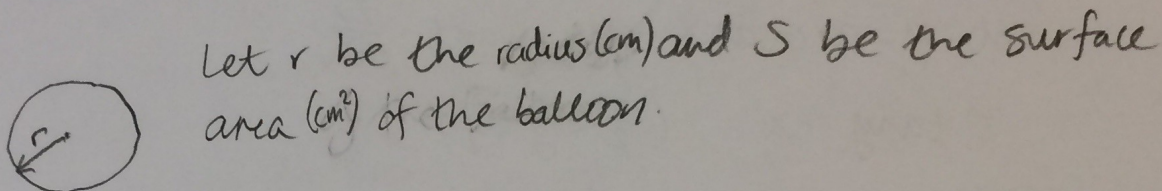 Let r be the radius (cm) and S be the surface
area (cm²) of the balloon.
r